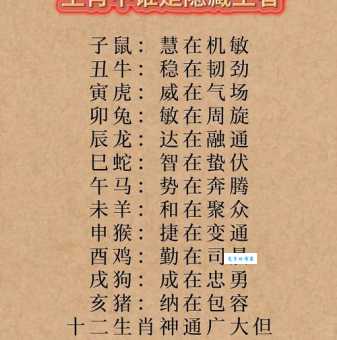 生肖中谁是隐藏王者
子鼠：慧在机敏
丑牛：稳在韧劲
寅虎：威在气场
卯兔：敏在周旋
辰龙：达在融通
巳蛇：智在蛰伏
午马：势在奔腾
未羊：和在聚众
申猴：捷在变通
酉鸡：勤在司
戌狗：成在忠勇
亥猪：纳在包容
十二生肖神通广大但